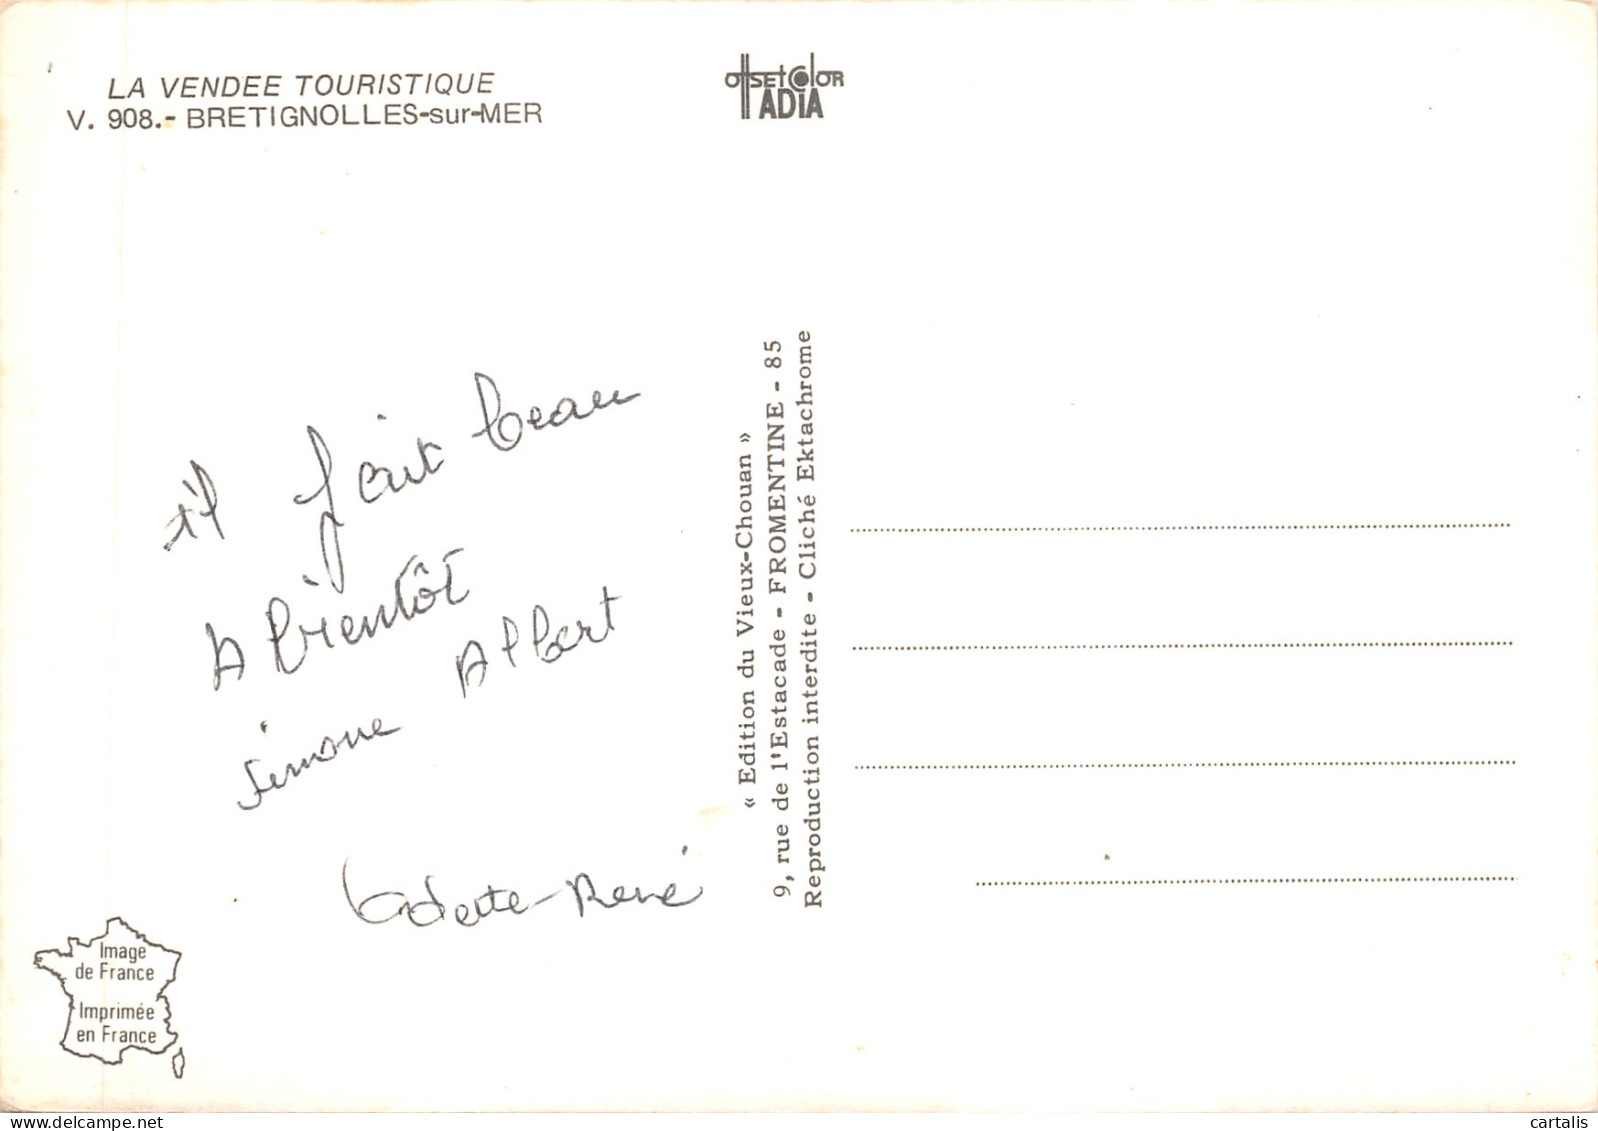 LA VENDEE TOURISTIQUE
V. 908.- BRETIGNOLLES-sur-MER
OffsetColor
ADIA
il fait beau
A bientôt
Simone Albert
Odette-René
« Edition du Vieux-Chouan »
9, rue de l'Estacade - FROMENTINE - 85
Reproduction interdite - Cliché Ektachrome
Image
de France
Imprimée
en France
delcampe.net
cartalis